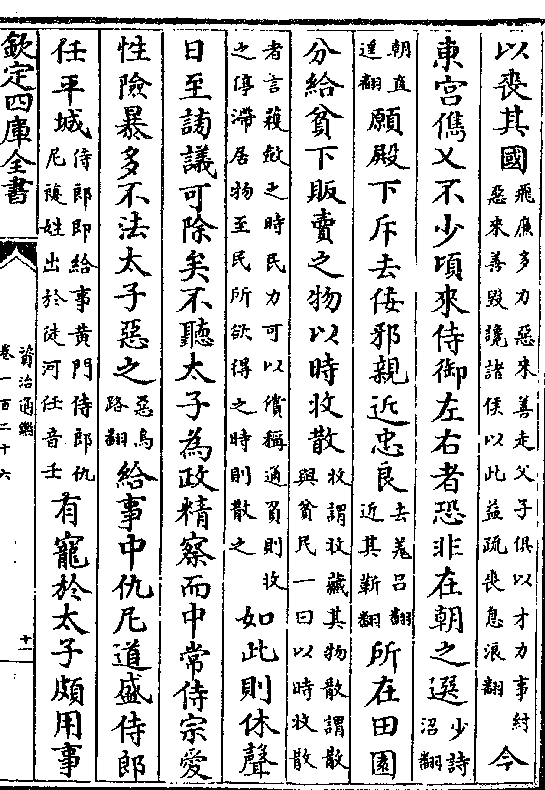 以喪其國飛廉多力惡來善走父子俱以才力事紂惡來善毀讒諸侯以此益疏喪息浪翻今
東宮儁乂不少頃來侍御左右者恐非在朝之選少詩沼翻
朝直遥翻願殿下斥去佞邪親近忠良去羌吕翻近其靳翻所在田園
分給貧下販賣之物以時收散收謂收藏其物散謂散與貧民一曰以時收散
者言穫歛之時民力可以償稱逋負則收之停滯居物至民所欲得之時則散之如此則休聲
日至謗議可除矣不聽太子為政精察而中常侍宗愛
性險暴多不法太子惡之惡烏路翻給事中仇尼道盛侍郎
任平城侍郎即給事黄門侍郎仇尼複姓出於徒河任音壬有寵於太子頗用事
欽定四庫全書
資治通鑑
卷一百二十六
十一